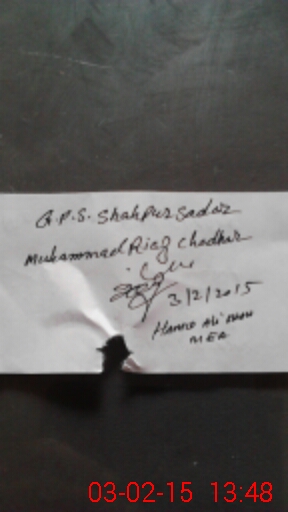 G.P.S. Shahpur Sadar
Muhammad Riaz Chadhar
3/2/2015
Ali
MEA
03-02-15 13:48